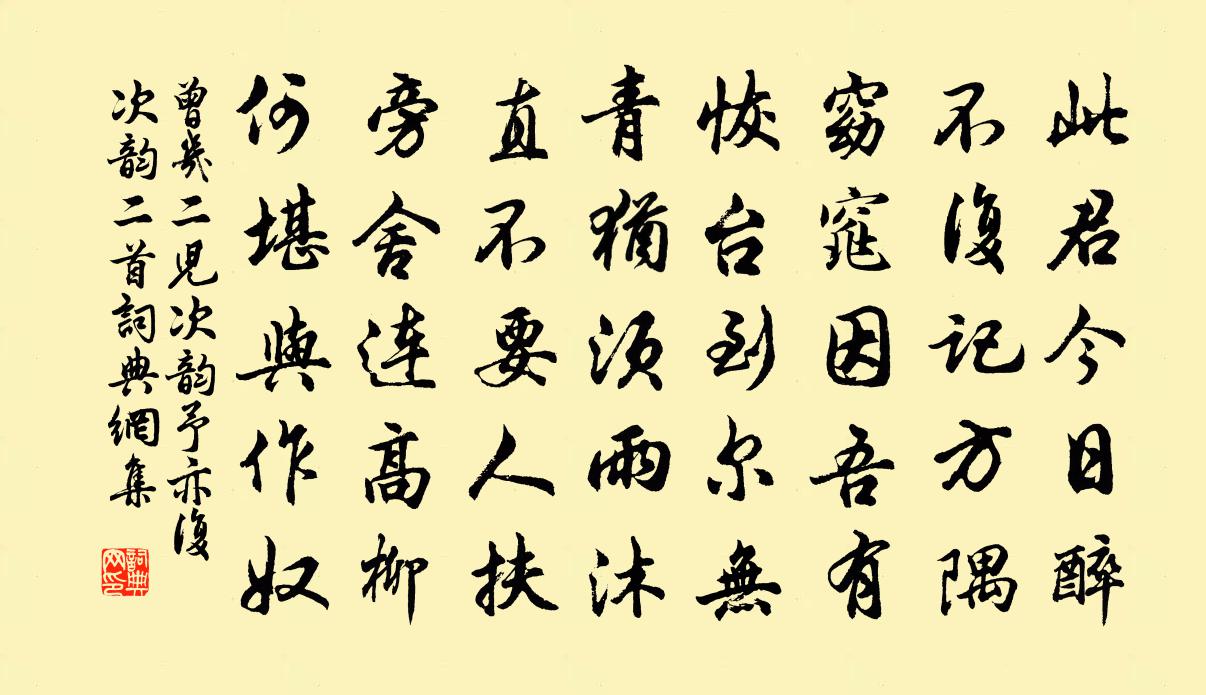 此君今日醉
不復记方隅
窈窕因吾有
恢台到尔無
青猶须雨沐
直不要人扶
旁舍连高柳
何堪與作奴
曾幾二児次韵予亦復
次韵二首詞典網集
詞典网印